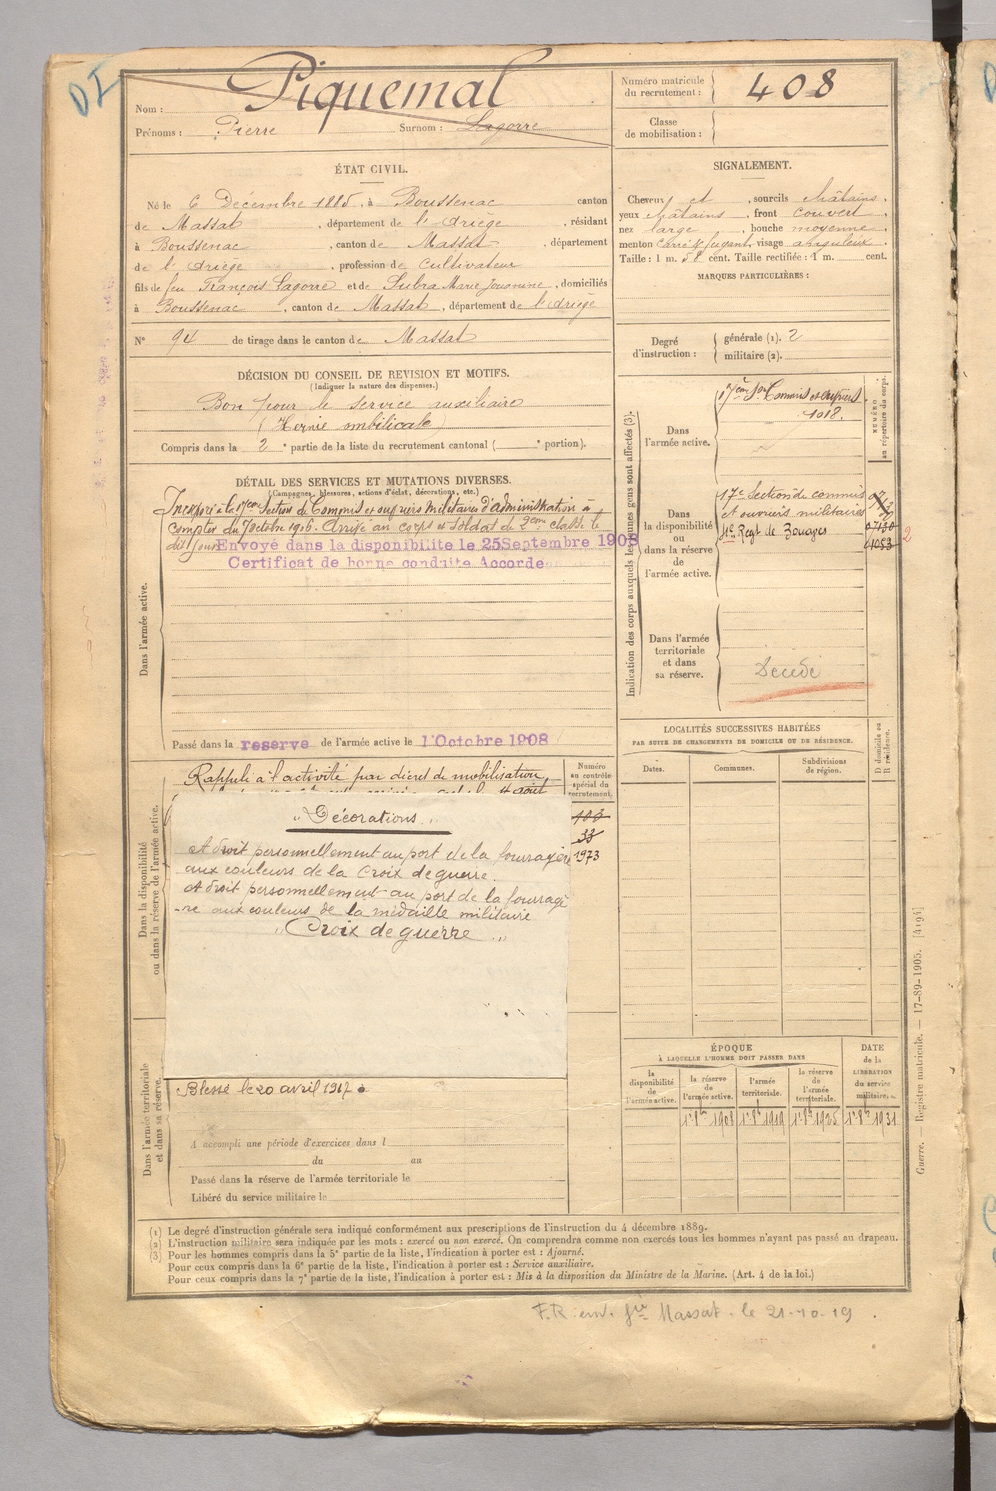 DI
Nom : Piquemal
Prénoms : Pierre Surnom : Lagorre
Numéro matricule du recrutement : 408
Classe de mobilisation :
ÉTAT CIVIL.
Né le 6 Décembre 1885, à Boussenac canton
de Massat, département de l'Ariège, résidant
à Boussenac, canton de Massat, département
de l'Ariège, profession de Cultivateur
fils de feu François Lagorre et de Subra Marie Jouanine, domiciliés
à Boussenac, canton de Massat, département de l'Ariège
N° 94 de tirage dans le canton de Massat
SIGNALEMENT.
Cheveux et, sourcils châtains,
yeux châtains, front couvert,
nez large, bouche moyenne,
menton carré & fuyant, visage anguleux.
Taille : 1 m. 58 cent. Taille rectifiée : 1 m. cent.
MARQUES PARTICULIÈRES :
Degré d'instruction : générale (1). 2
militaire (2).
DÉCISION DU CONSEIL DE REVISION ET MOTIFS.
(Indiquer la nature des dispenses.)
Bon pour le service auxiliaire
(Hernie ombilicale)
Compris dans la 2e partie de la liste du recrutement cantonal ( e portion).
DÉTAIL DES SERVICES ET MUTATIONS DIVERSES.
(Campagnes, blessures, actions d'éclat, décorations, etc.)
Dans l'armée active.
Incorporé à la 17eme Section de Commis et ouvriers Militaires d'administration à
compter du 7 octobre 1906. Arrivé au corps et soldat de 2eme classe le
dit jour Envoyé dans la disponibilite le 25 Septembre 1908
Certificat de bonne conduite Accorde
Passé dans la reserve de l'armée active le 1 Octobre 1908
Indication des corps auxquels les jeunes gens sont affectés (3).
NUMÉRO au répertoire du corps.
Dans l'armée active.
17eme Son Commis et ouvriers
1018.
Dans la disponibilité ou dans la réserve de l'armée active.
17e Section de commis
et ouvriers militaires
4e Regt de Zouaves
2
Dans l'armée territoriale et dans sa réserve.
Décédé
LOCALITÉS SUCCESSIVES HABITÉES
PAR SUITE DE CHANGEMENTS DE DOMICILE OU DE RÉSIDENCE.
Dates. Communes. Subdivisions de région. D domicile ou R résidence.
Dans la disponibilité ou dans la réserve de l'armée active.
Numéro au contrôle spécial du recrutement.
Rappelé à l'activité par décret de mobilisation
4 août
103
33
1973
" Décorations "
A droit personnellement au port de la fourragère
aux couleurs de la Croix de guerre.
A droit personnellement au port de la fourragè
-re aux couleurs de la médaille militaire
" Croix de guerre "
Dans l'armée territoriale et dans sa réserve.
Blessé le 20 avril 1917
A accompli une période d'exercices dans l
du au
Passé dans la réserve de l'armée territoriale le
Libéré du service militaire le
ÉPOQUE
À LAQUELLE L'HOMME DOIT PASSER DANS
la disponibilité de l'armée active. la réserve de l'armée active. l'armée territoriale. la réserve de l'armée territoriale. DATE de la LIBÉRATION du service militaire.
1er 8bre 1908 1er 8bre 1919 1er 8bre 1925 1er 8bre 1931
(1) Le degré d'instruction générale sera indiqué conformément aux prescriptions de l'instruction du 4 décembre 1889.
(2) L'instruction militaire sera indiquée par les mots : exercé ou non exercé. On comprendra comme non exercés tous les hommes n'ayant pas passé au drapeau.
(3) Pour les hommes compris dans la 5e partie de la liste, l'indication à porter est : Ajourné.
Pour ceux compris dans la 6e partie de la liste, l'indication à porter est : Service auxiliaire.
Pour ceux compris dans la 7e partie de la liste, l'indication à porter est : Mis à la disposition du Ministre de la Marine. (Art. 4 de la loi.)
Guerre. — Registre matricule. — 17-89-1905. [4194]
F.R. env. Massat. le 21-10-19.